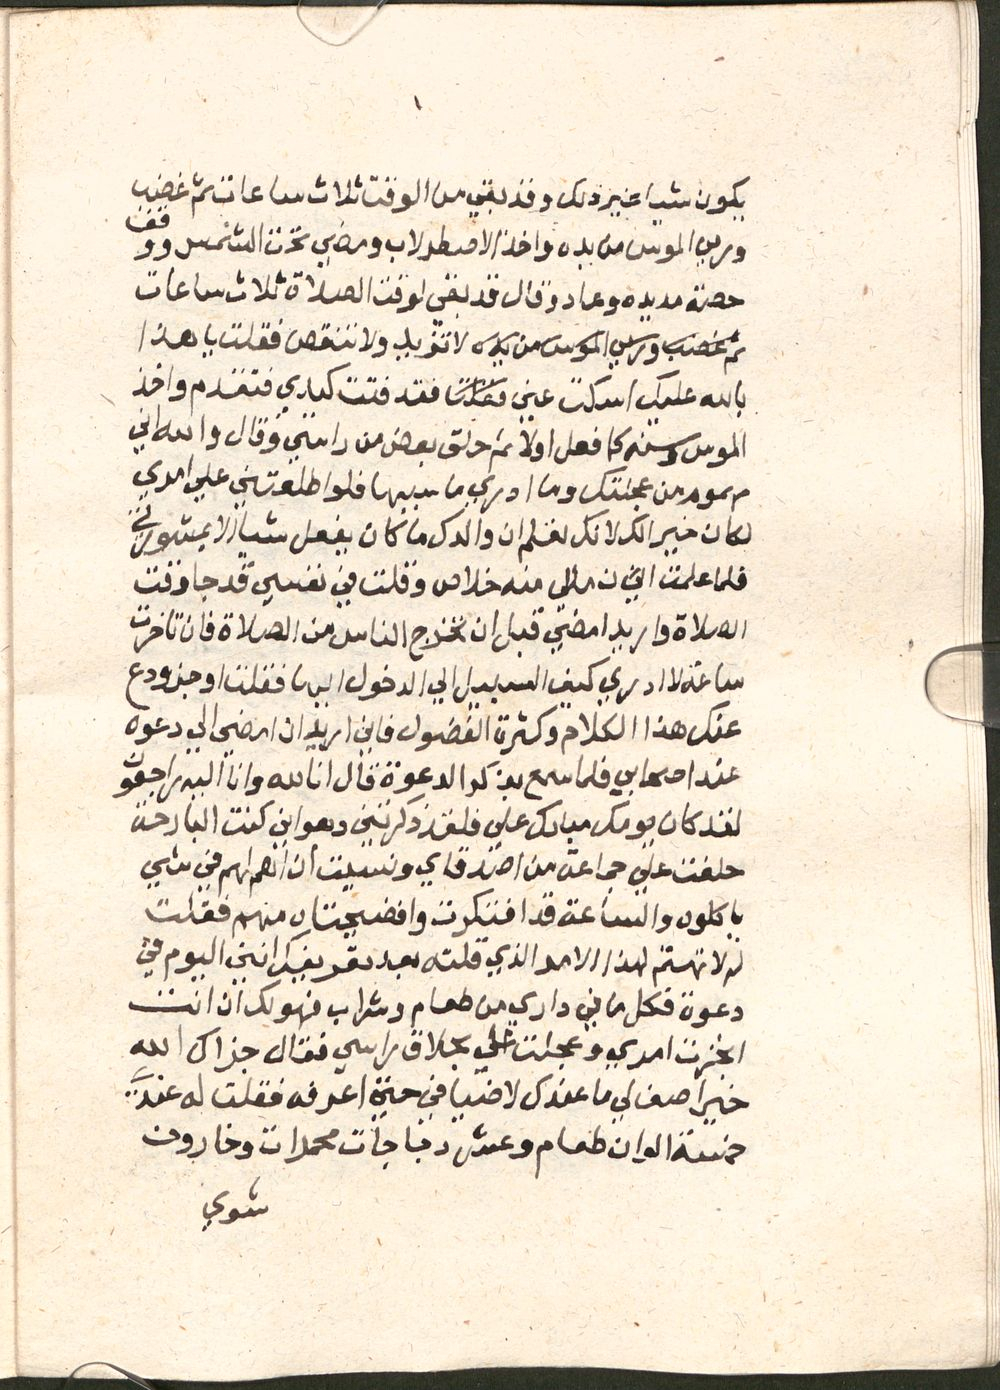 ١
يكون شيا غير ذلك وقد بقي من الوقت ثلاث ساعات ثم غضب
ورمي الموس من يده واخذ الاصطرلاب ومضي تحت الشمس ووقف
حصة مديده وعاد وقال قد بقي لوقت الصلاة ثلاث ساعات
ثم غضب ورمي الموس من يده لا تزيد ولا تنقص فقلت يا هذا
بالله عليك اسكت عني فقد فتت كبدي فتقدم واخذ
الموس وسنه كما فعل اولا ثم حلق بعض من راسي وقال والله اني
مهموم من عجلتك وما ادري ما سببها فلو اطلعتني علي امرك
لكان خير الك لانك تعلم ان والدك ما كان يفعل شيا الا بمشورتي
فلما علمت ان مالي منه خلاص وقلت في نفسي قد جا وقت
الصلاة واريد امضي قبل ان تخرج الناس من الصلاة فان تاخرت
ساعة لا ادري كيف السبيل الي الدخول اليها فقلت اوجز ودع
عنك هذا الكلام وكثرة الفضول فاني اريد ان امضي الي دعوه
عند اصحابي فلما سمع بذكر الدعوة قال انا لله وانا اليه راجعون
لقد كان يومك مبارك علي فلقد ذكرتني وهو اني كنت البارحة
حلفت علي جماعة من اصدقاي ونسيت ان اهم لهم في شي
ياكلوه والساعة قد افتكرت وافضيحتاه منهم فقلت
له لا تهتم لهذا الامر الذي قلته بعد تعريفك انني اليوم في
دعوة فكل ما في داري من طعام وشراب فهو لك ان انت
انجزت امري وعجلت علي بحلاق راسي فقال جزاك الله
خيرا صف لي ما عندك لاضيافي حتي اعرفه فقلت له عندي
خمسة الوان طعام وعشر دجاجات محمرات وخاروف
شوي